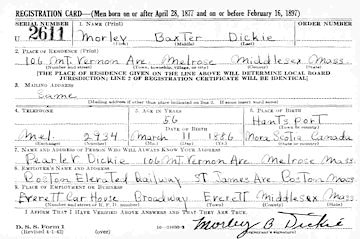 REGISTRATION CARD—(Men born on or after April 28, 1877 and on or before February 16, 1897)
SERIAL NUMBER 1. NAME (Print) ORDER NUMBER
U 2611 Morley Baxter Dickie
2. PLACE OF RESIDENCE (Print)
106 Mt. Vernon Ave. Melrose Middlesex Mass.
[THE PLACE OF RESIDENCE GIVEN ON THE LINE ABOVE WILL DETERMINE LOCAL BOARD
JURISDICTION; LINE 2 OF REGISTRATION CERTIFICATE WILL BE IDENTICAL]
3. MAILING ADDRESS
Same
[Mailing address if other than place indicated on line 2. If same insert word same]
4. TELEPHONE 5. AGE IN YEARS 6. PLACE OF BIRTH
56 Hantsport
DATE OF BIRTH
Mel. 2434 March 11 1886 Nova Scotia Canada
7. NAME AND ADDRESS OF PERSON WHO WILL ALWAYS KNOW YOUR ADDRESS
Pearle V. Dickie 106 Mt. Vernon Ave. Melrose Mass.
8. EMPLOYER'S NAME AND ADDRESS
Boston Elevated Railway St James Ave. Boston Mass
9. PLACE OF EMPLOYMENT OR BUSINESS
Everett Car House Broadway Everett Middlesex Mass.
I AFFIRM THAT I HAVE VERIFIED ABOVE ANSWERS AND THAT THEY ARE TRUE.
D. S. S. Form 1
(Revised 4-1-42) (over)
Morley B. Dickie